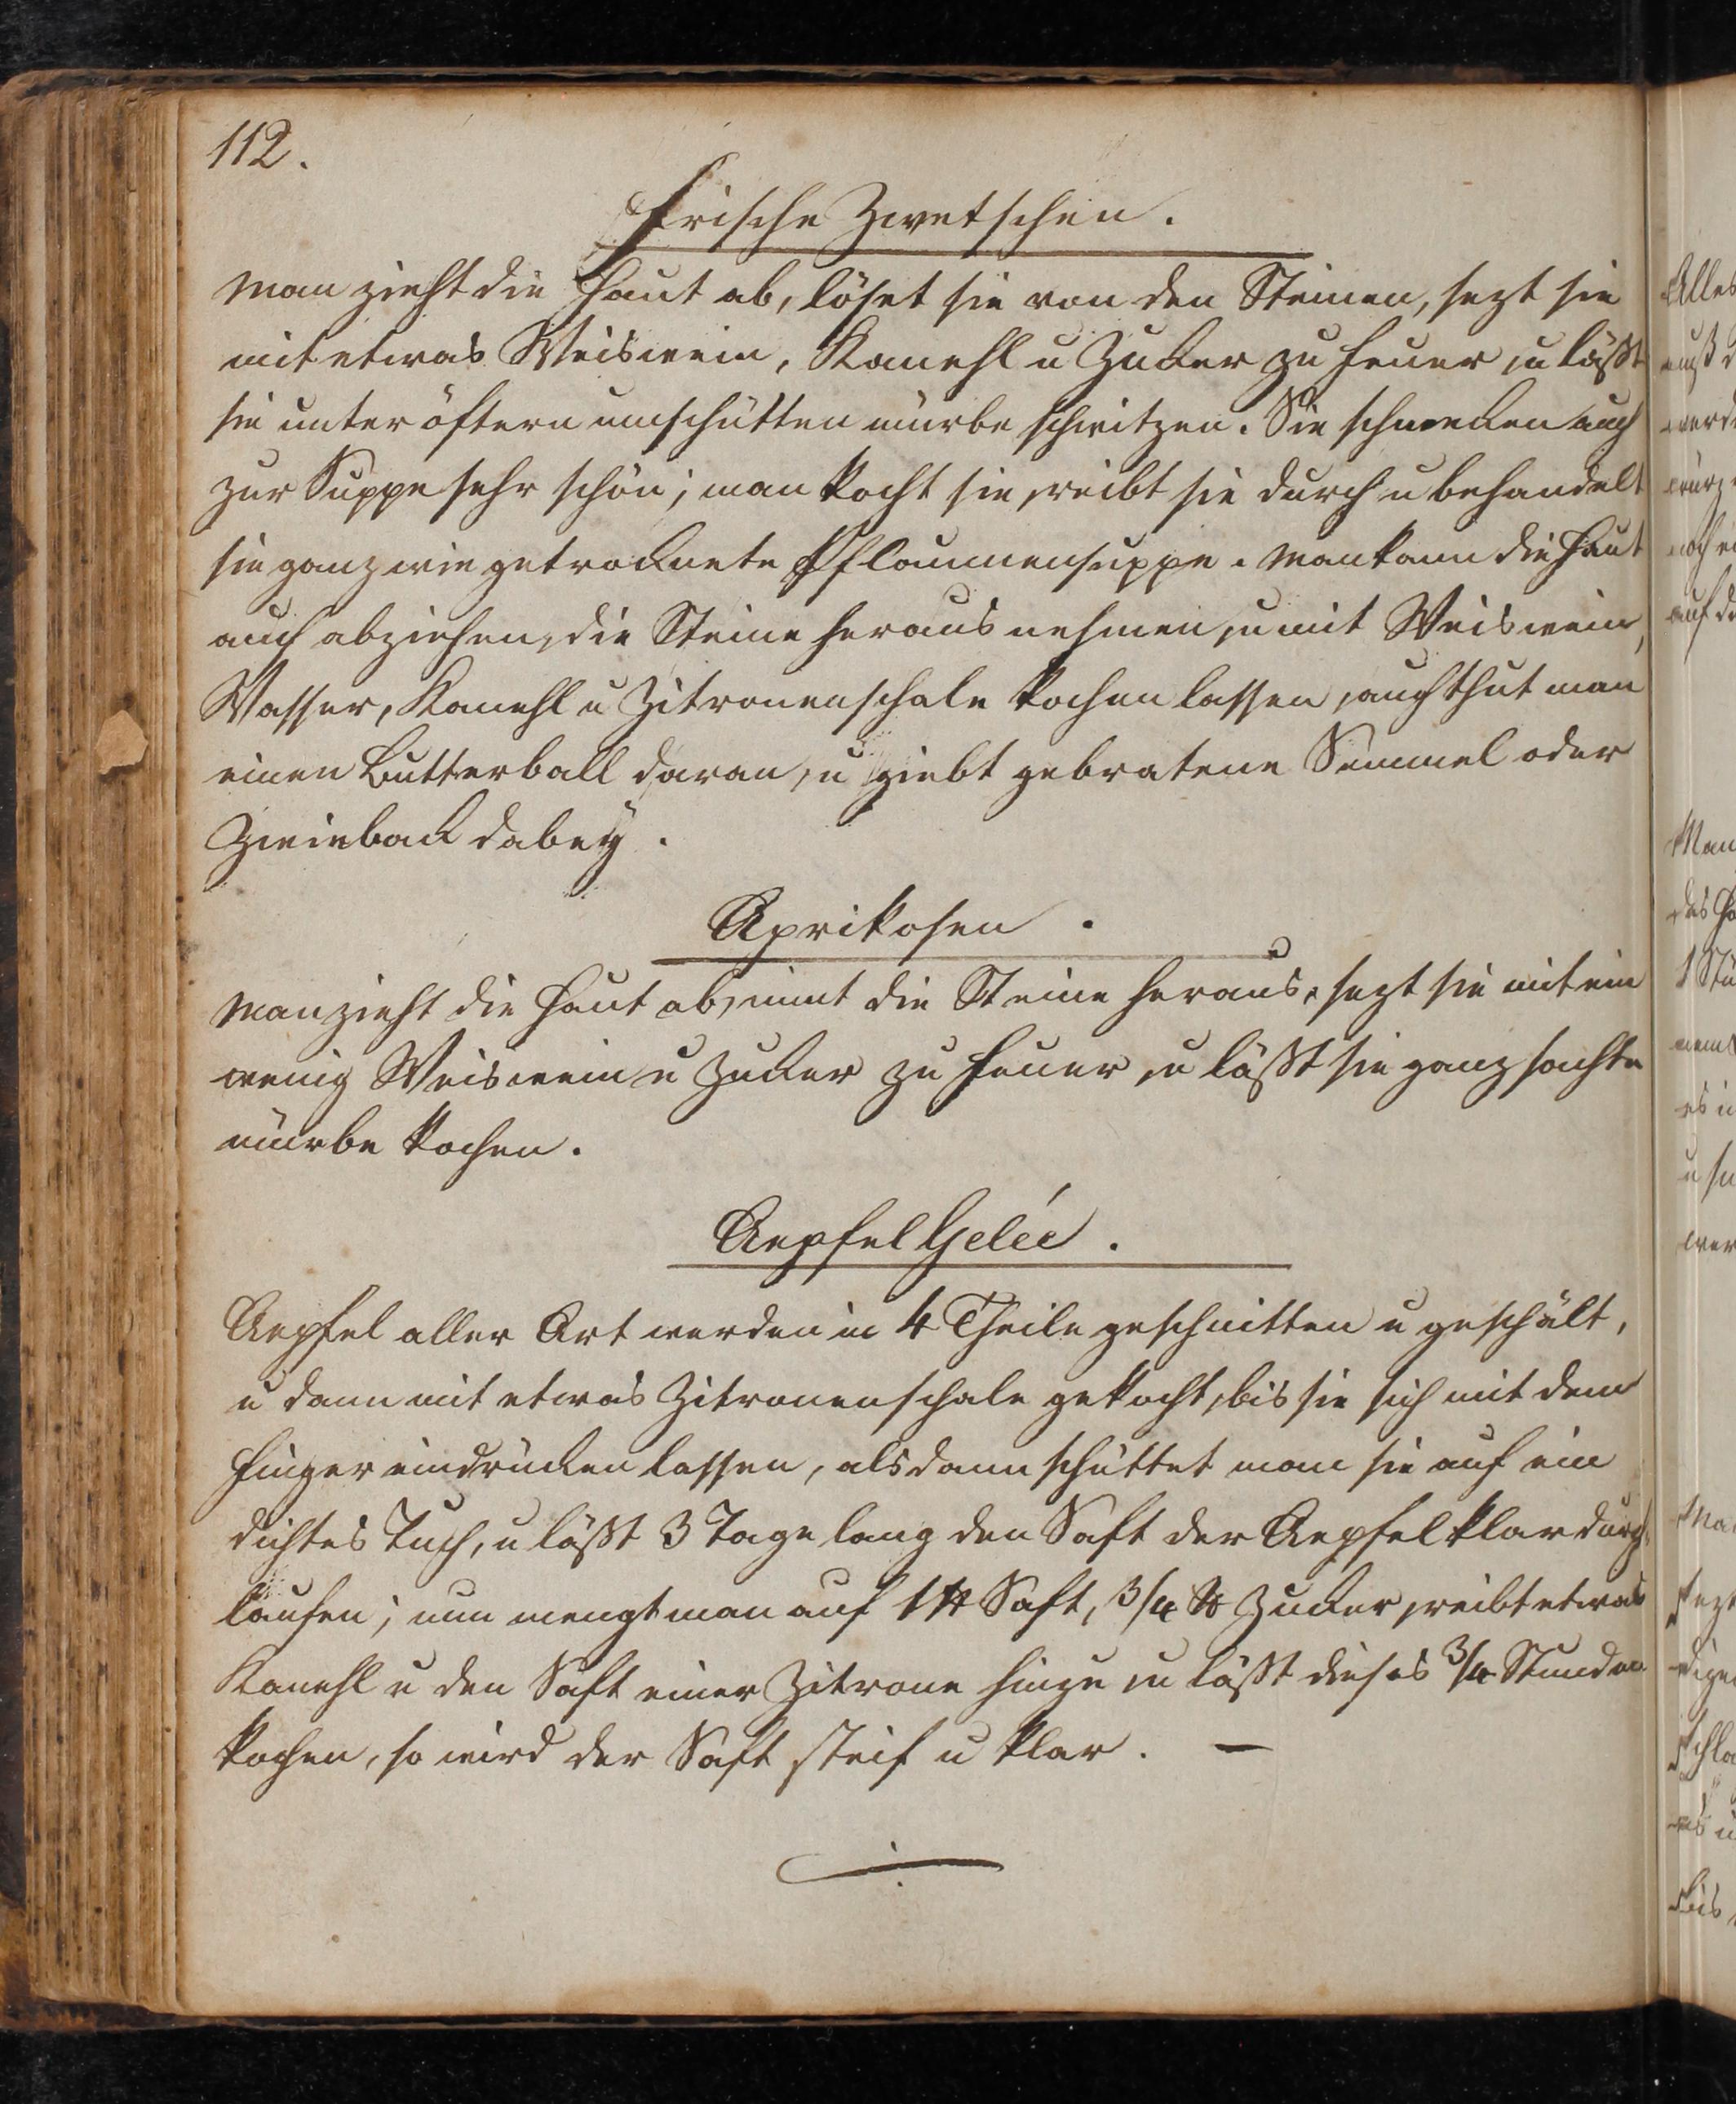 112.
Frische Zwetschen.
Man zieht die Haut ab, löset sie von den Steinen, sezt sie
mit etwas Weiswein, Kanehl u Zucker zu Feuer, u läßt
sie unter öftern umschütten mürbe schwitzen. Sie schmecken auch
zur Suppe sehr schön; man kocht sie, reibt sie durch u behandelt
sie ganz wie getrocknete Pflaumensuppe. Man kann die Haut
auch abziehen, die Steine heraus nehmen, u mit Weiswein,
Wasser, Kanehl u Zitronenschale kochen lassen, auch thut man
einen Butterball daran, u giebt gebratene Semmel oder
Zwieback dabey.
Aprikosen.
Man zieht die Haut ab, nimt die Steine heraus, sezt sie mit ein
wenig Weiswein u Zucker zu Feuer, u läßt sie ganz sachte
mürbe kochen.
Aepfel Gelée.
Aepfel aller Art werden in 4 Theile geschnitten u geschält,
u dann mit etwas Zitronenschale gekocht, bis sie sich mit dem
Finger eindrücken lassen, alsdann schüttet man sie auf ein
dichtes Tuch, u läßt 3 Tage lang den Saft der Aepfel klar durch
laufen; nun mengt man auf 1 ℔ Saft, 3/4 ℔ Zucker, reibt etwas
Kanehl u den Saft einer Zitrone hinzu, u läßt dieses 3/4 Stunden
kochen, so wird der Saft steif u klar. —
Alles
muß
werd
würz
noch
auf
Man
das
1
es
u